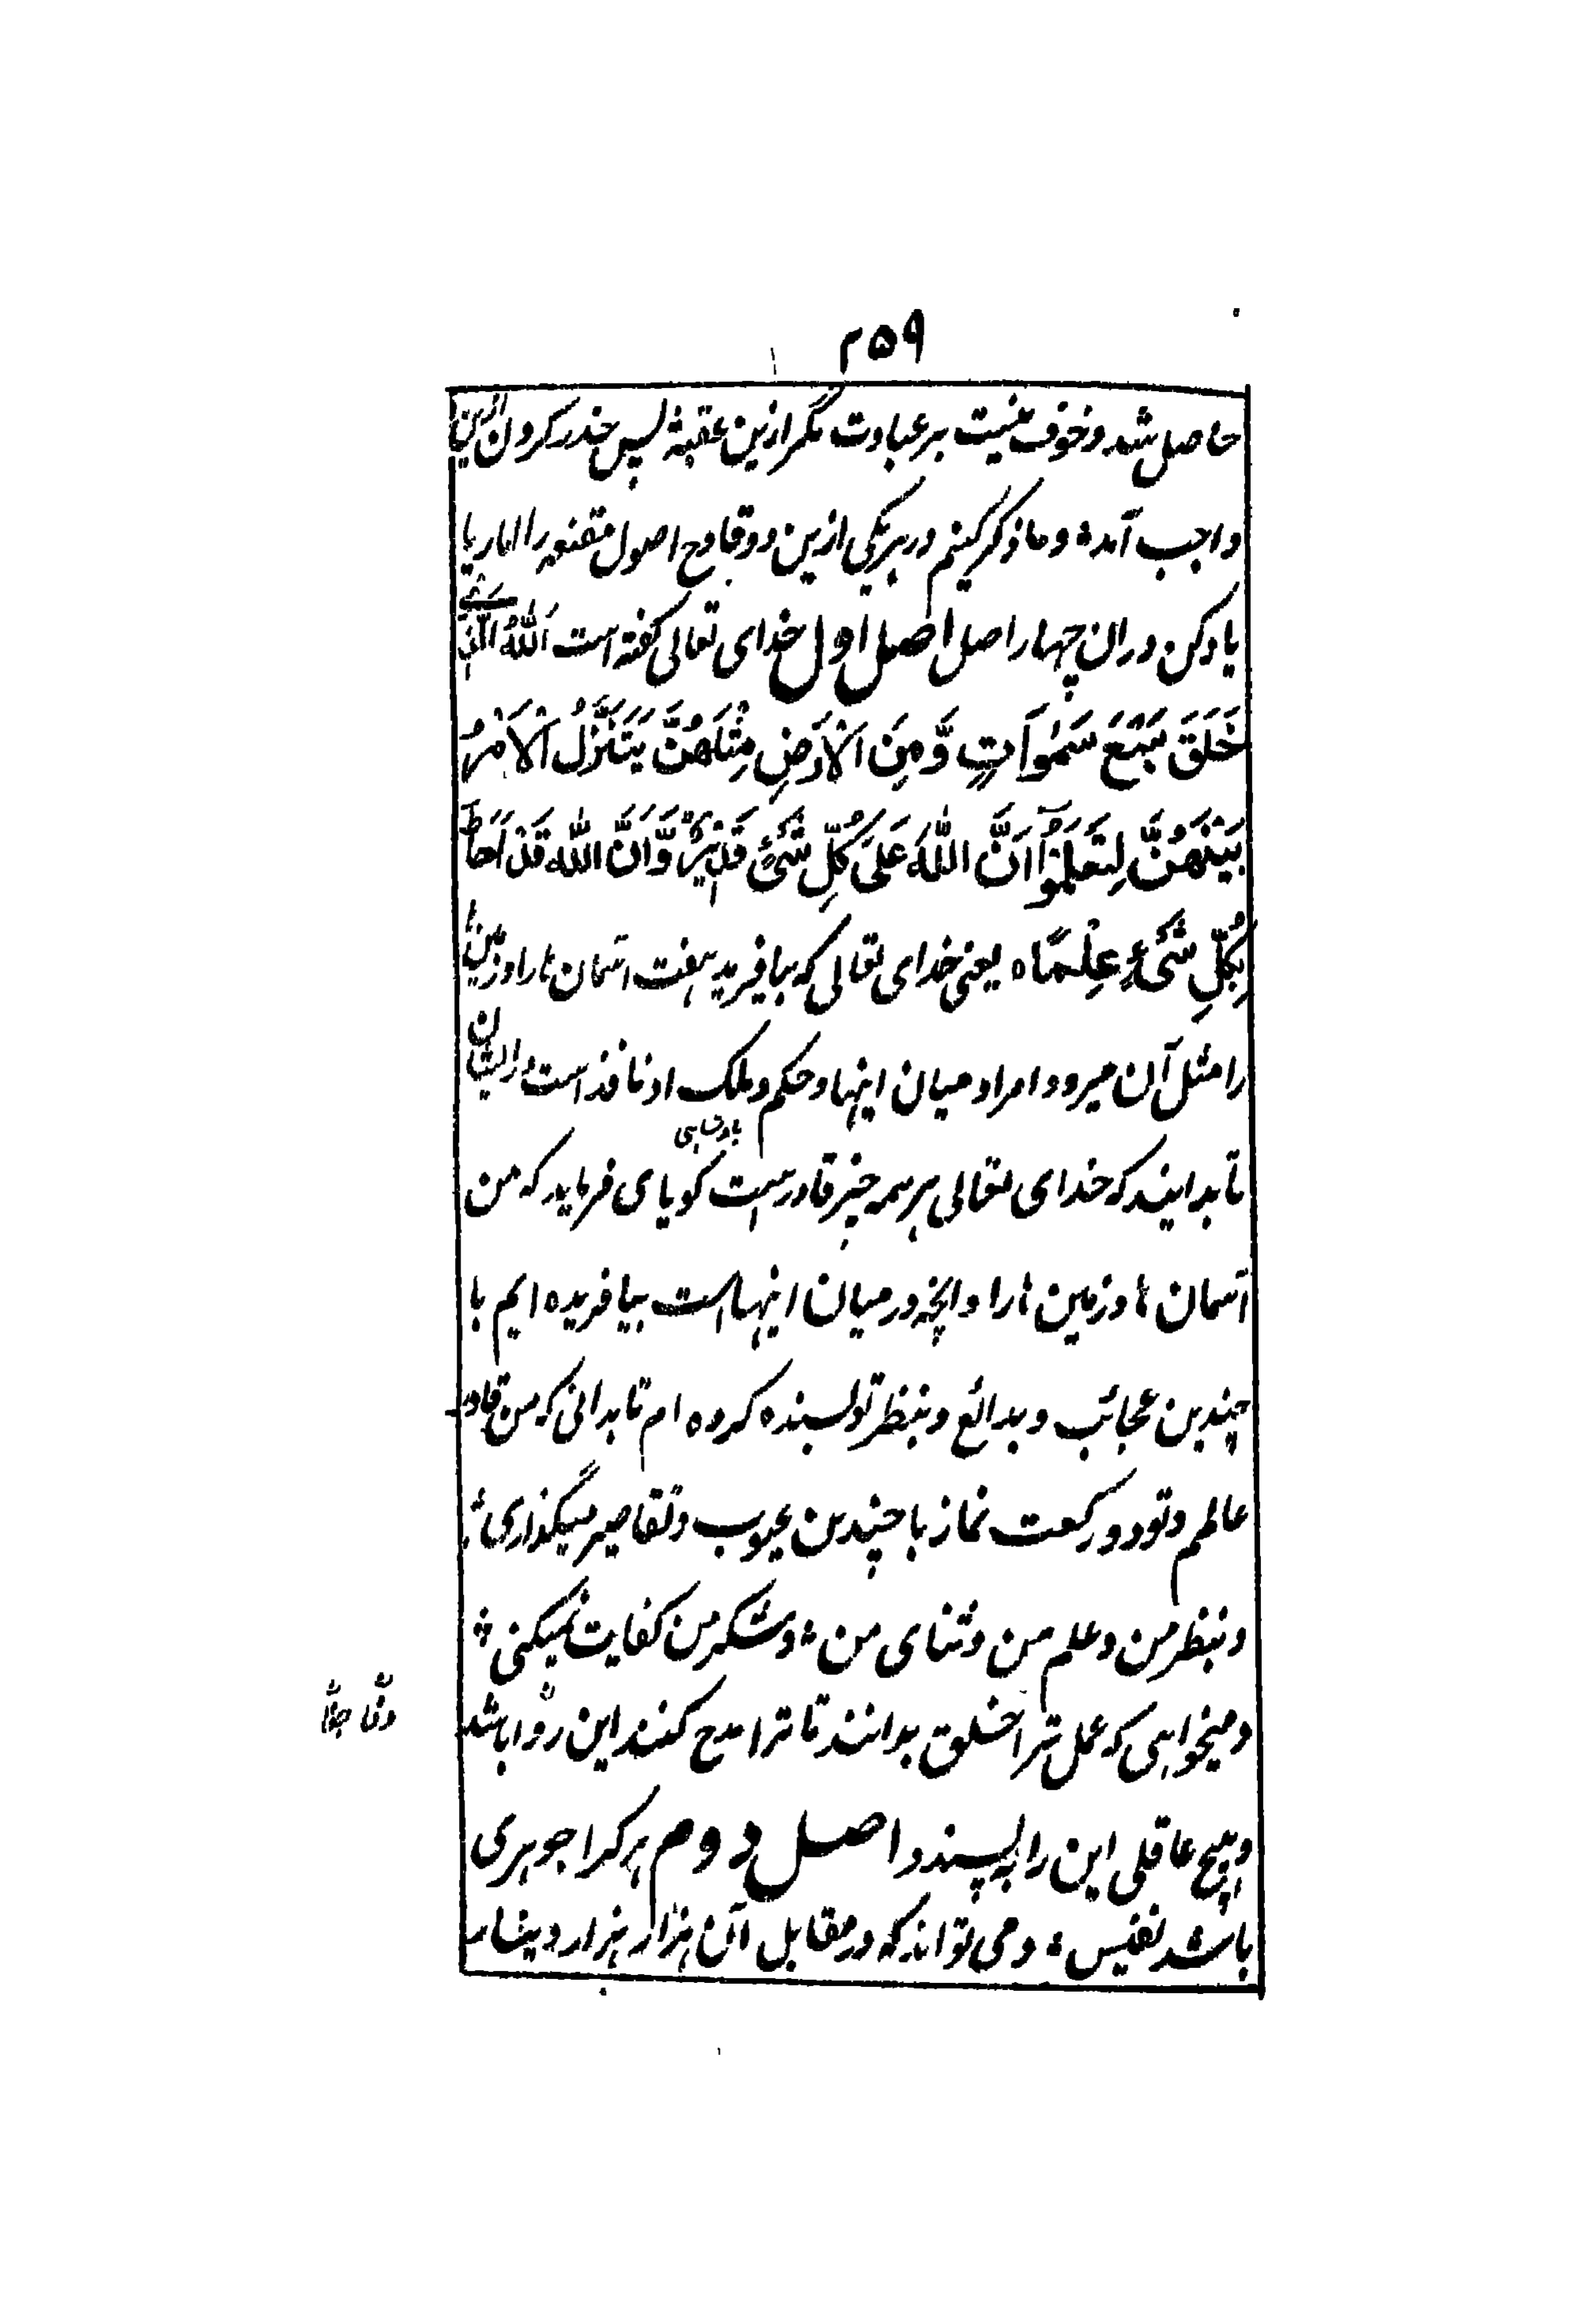 ۲۵۹
حاصل شد و خوف نیست بر عبادت مگر ازین عقبة پس حذر کردن ازین
واجب آمد ؛ و ما ذکر کنیم در هر یکی ازین دو قادح اصول مقنعه را اما ریا
یاد کن در ان چهار اصل اصل اول خدای تعالی گفته است اَللّٰهُ الَّذِیْ
خَلَقَ سَبْعَ سَمٰوَاتٍ وَّمِنَ الْاَرْضِ مِثْلَهُنَّ یَتَنَزَّلُ الْاَمْرُ
بَیْنَهُنَّ لِتَعْلَمُوْٓا اَنَّ اللّٰهَ عَلٰی کُلِّ شَیْءٍ قَدِیْرٌ وَّاَنَّ اللّٰهَ قَدْ اَحَاطَ
بِکُلِّ شَیْءٍ عِلْمًا ه یعنی خدای تعالی که بیافرید هفت آسمان ها را و زمین ها
را مثل آن میرود امر او میان اینها و حکم و ملک او نافذ است در ایشان
بادشاهی
تا بدانید که خدای تعالی بر همه چیز قادر است گویا می فرماید که من
آسمان ها و زمین ها را و انچه در میان اینها است بیافریده ایم با
چندین عجائب و بدائع و بنظر تو بسنده کرده ام تا بدانی که من قادر
عالم و تو دو رکعت نماز با چندین عیوب و تقاصیر میگذاری ؛
و بنظر من و علم من و ثنای من ؛ و شکر من کفایت نمیکنی ؛
و میخواهی که عمل ترا خلق بدانند تا ترا مدح کنند این روا باشد
وفا جفا
و هیچ عاقلی این را به پسندد اصل دوم هر کرا جوهری
باشد نفیس ؛ و می تواند که در مقابل آن هزار هزار دینار